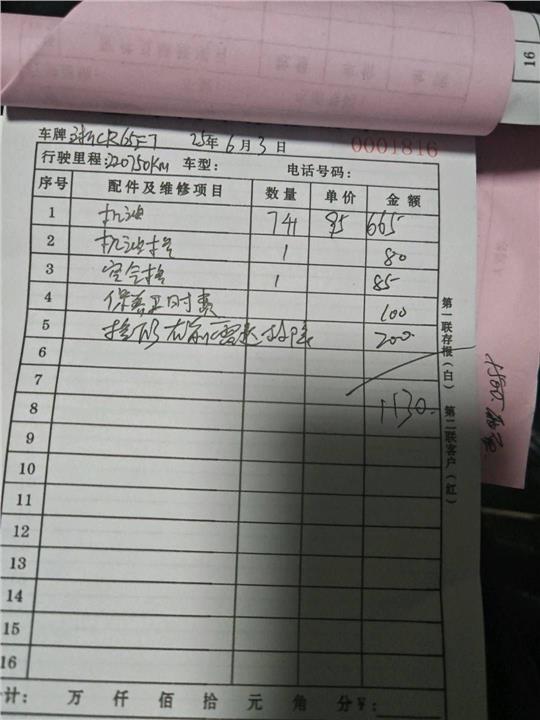 16
车牌 CR65F7 25年6月3日 0001816
行驶里程:220750KM 车型: 电话号码:
序号 配件及维修项目 数量 单价 金额
1 机油 7 95 665
2 机油格 1 80
3 空气格 1 85
4 保养工时费 100
5 200
6
7
8 1130.
9
10
11
12
13
14
15
16
计: 万 仟 佰 拾 元 角 分 ¥:
第一联存根(白) 第二联客户(红)